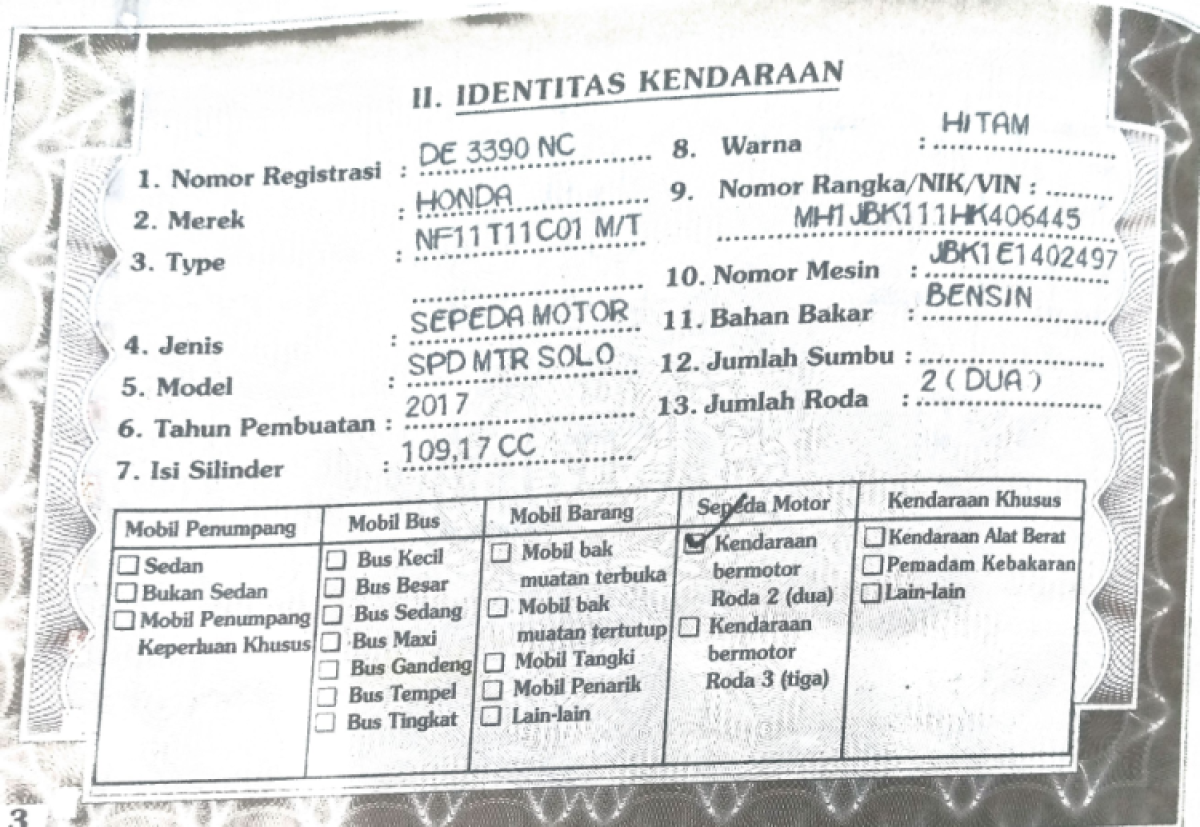 II. IDENTITAS KENDARAAN
1. Nomor Registrasi : DE 3390 NC
2. Merek : HONDA
3. Type : NF11T11C01 M/T
4. Jenis : SEPEDA MOTOR
5. Model : SPD MTR SOLO
6. Tahun Pembuatan : 2017
7. Isi Silinder : 109,17 CC
8. Warna : HITAM
9. Nomor Rangka/NIK/VIN :
MH1JBK111HK406445
10. Nomor Mesin : JBK1E1402497
11. Bahan Bakar : BENSIN
12. Jumlah Sumbu :
13. Jumlah Roda : 2 ( DUA )
Mobil Penumpang
Sedan
Bukan Sedan
Mobil Penumpang
Keperluan Khusus
Mobil Bus
Bus Kecil
Bus Besar
Bus Sedang
Bus Maxi
Bus Gandeng
Bus Tempel
Bus Tingkat
Mobil Barang
Mobil bak
muatan terbuka
Mobil bak
muatan tertutup
Mobil Tangki
Mobil Penarik
Lain-lain
Sepeda Motor
Kendaraan
bermotor
Roda 2 (dua)
Kendaraan
bermotor
Roda 3 (tiga)
Kendaraan Khusus
Kendaraan Alat Berat
Pemadam Kebakaran
Lain-lain
3